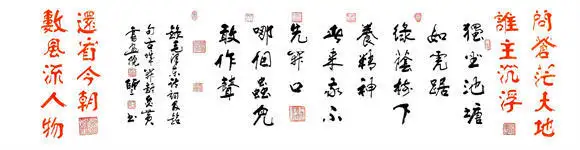 問蒼茫大地
誰主沉浮
獨坐池塘
如虎踞
綠蔭樹下
養精神
春來我不
先開口
哪個蟲兒
敢作聲
錄毛澤東詩詞
還看今朝
數風流人物